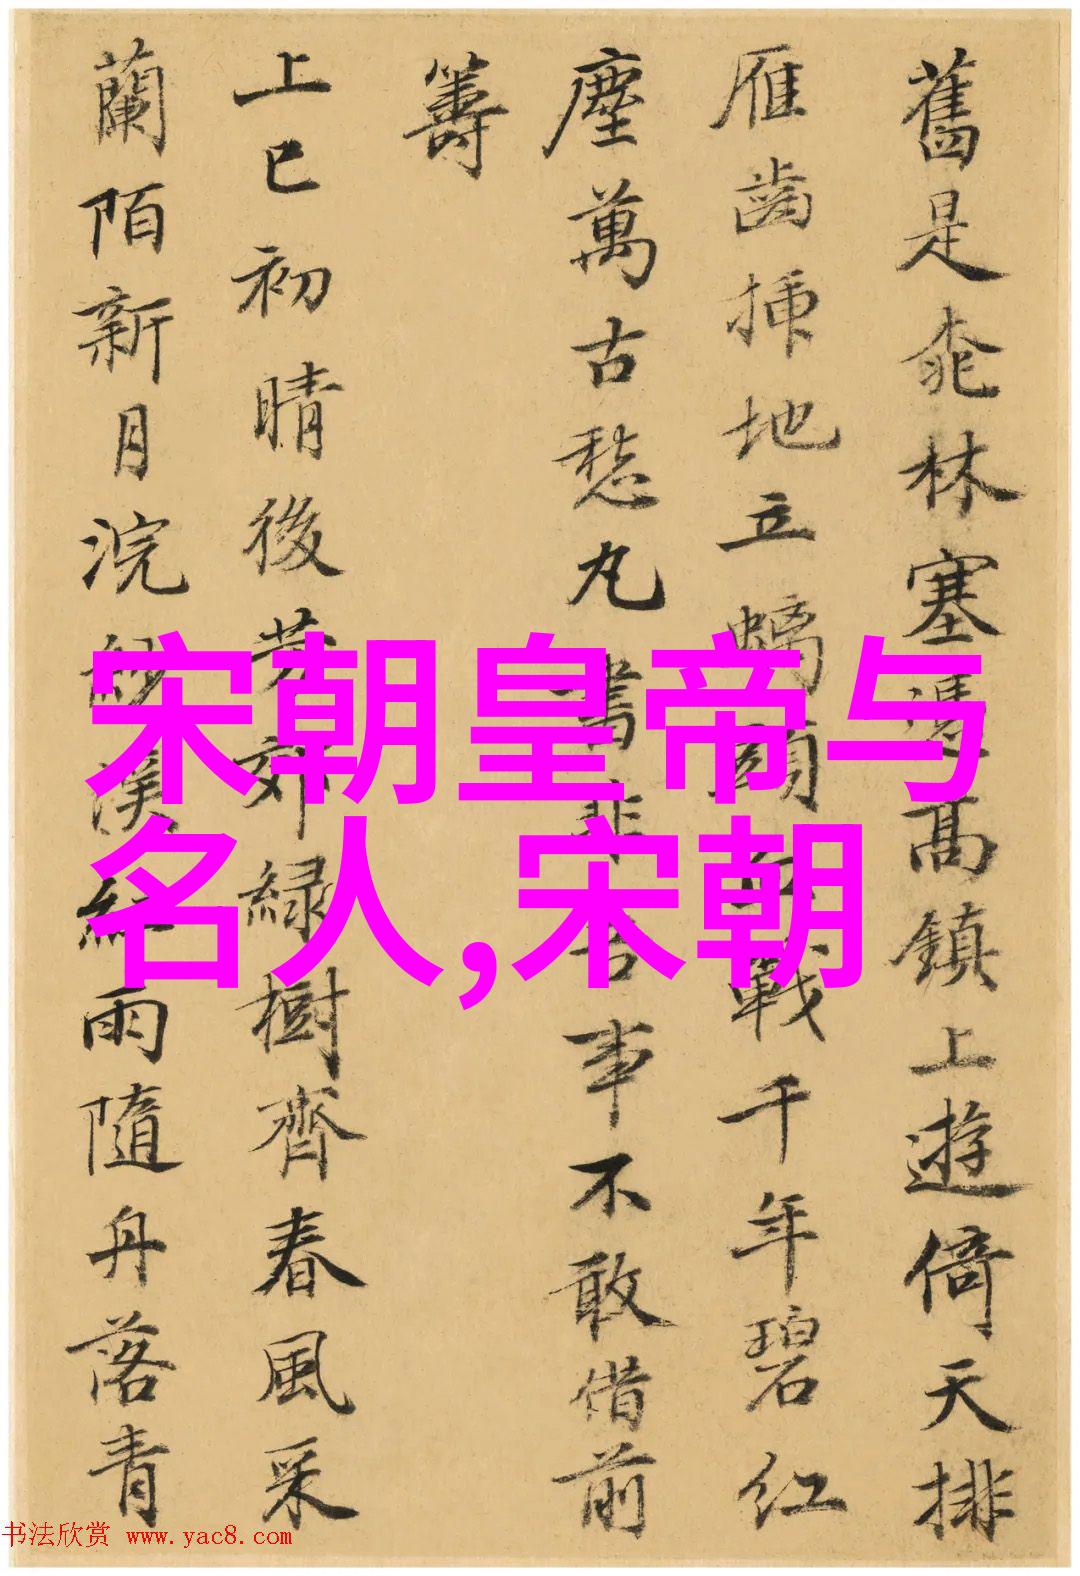 舊是桃林塞憑高鎮上遊倚天排
雁齒插地立螭頭血戰千年碧紅
塵萬古愁丸書非古事不敢借前
籌
上巳初晴後芳郊綠樹齊春風采
蘭陌新月浣紗溪紅雨隨舟落青
宋朝皇帝与
名人,宋朝
书法欣赏 www.yac8.com